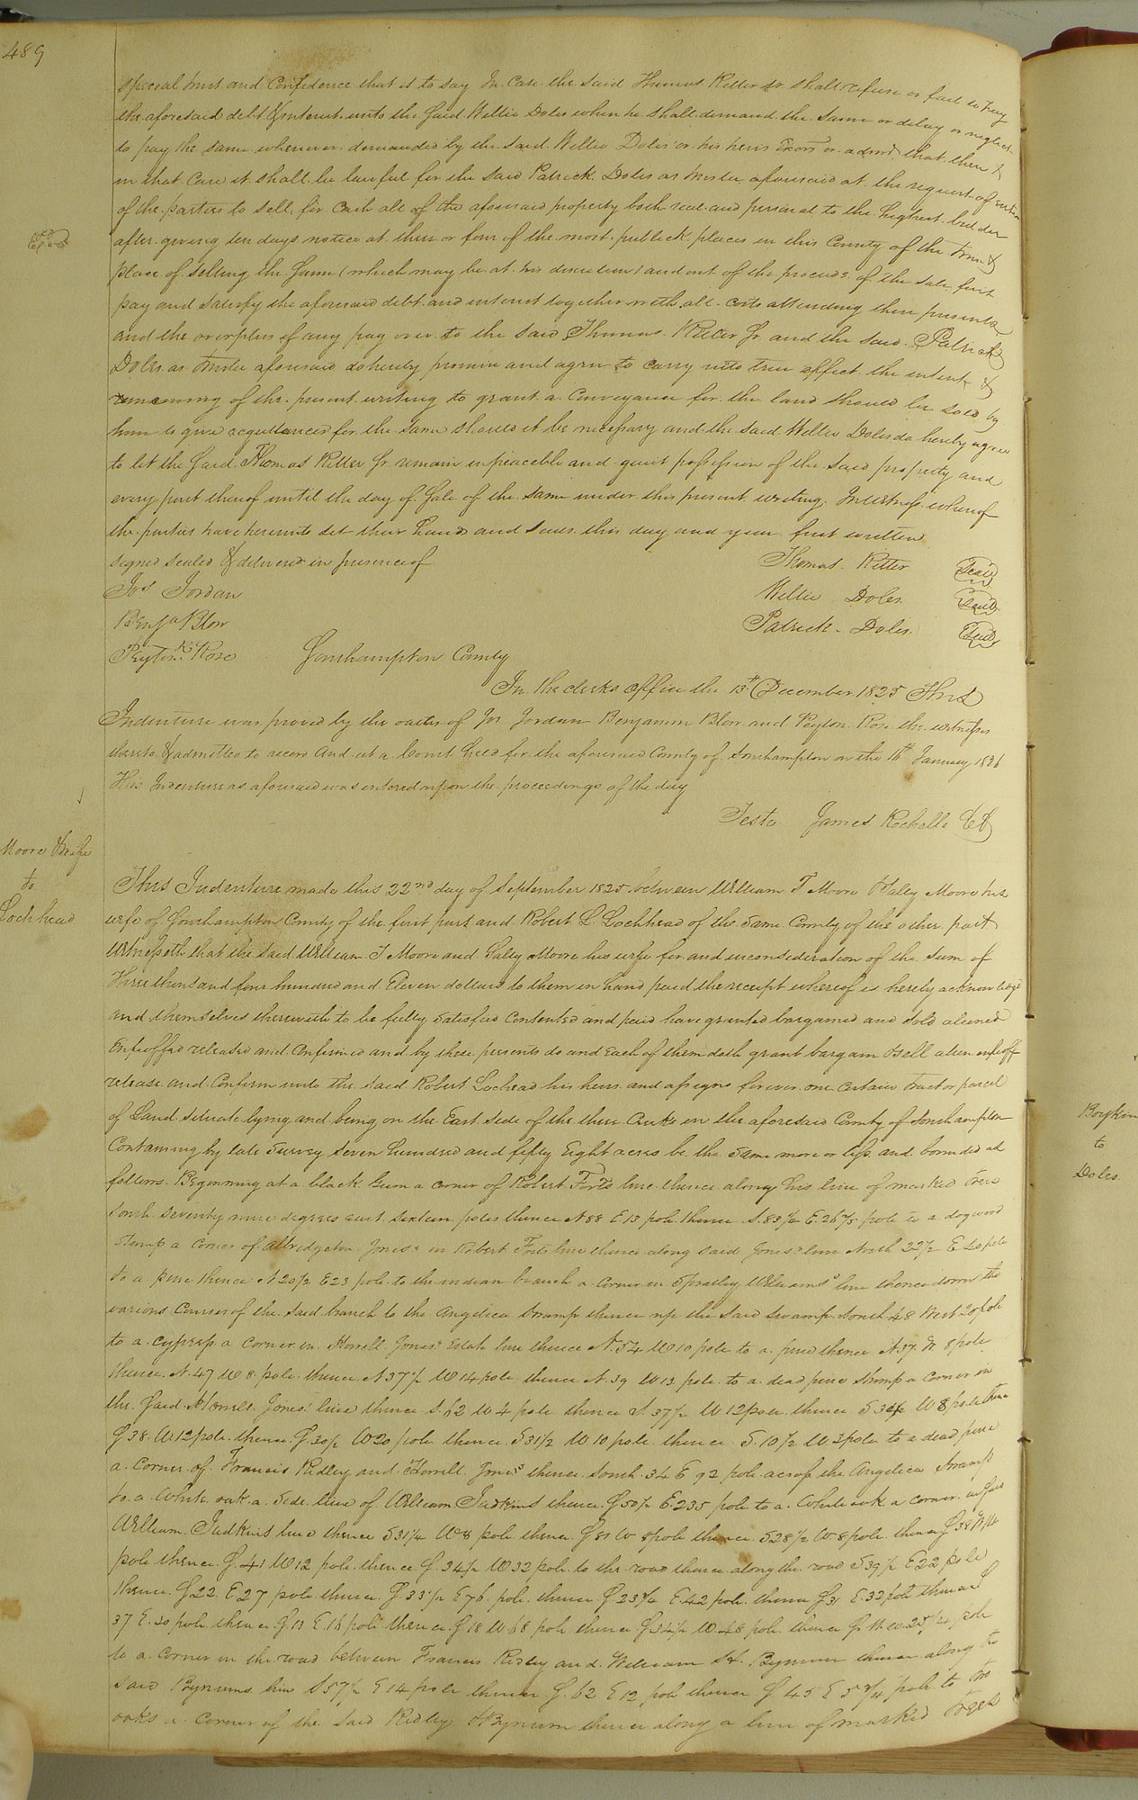 489
special trust and Confidence that is to say In Case the said Thomas Ritter Jr shall refuse or fail to pay
the aforesaid debt & interest unto the said Willie Doles when he shall demand the same or delay or neglect
to pay the same whenever demanded by the said Willie Doles or his heirs Exors or admrs that then &
in that Case it shall be lawful for the said Patrick Doles as trustee aforesaid at the request of either
of the parties to sell for Cash all of the aforesaid property both real and personal to the highest bidder
after giving ten days notice at three or four of the most publick places in this County of the time &
place of selling the same (which may be at his discretion) and out of the proceeds of the sale first
pay and satisfy the aforesaid debt and interest together with all costs attending these presents
and the overplus if any pay over to the said Thomas Ritter Jr and the said Patrick
Doles as trustee aforesaid do hereby promise and agree to carry into true effect the intent &
meaning of the present writing to grant a Conveyance for the land should be sold by
him to give acquittances for the same should it be necessary and the said Willie Doles do hereby agree
to let the said Thomas Ritter Jr remain in peaceble and quiet possession of the said property and
every part thereof until the day of sale of the same under this present writing. In witness whereof
the parties have hereunto set their hands and seals this day and year first written
signed sealed & delivered in presence of
Thomas Ritter Seal
Jos Jordan
Willie Doles Seal
Benja Blow
Patrick Doles Seal
Peyton Rose Southampton County
In the clerks office the 15th December 1825 This
Indenture was proved by the oaths of Jos Jordan Benjamin Blow and Peyton Rose the witnesses
thereto & admitted to record And at a Court held for the aforesaid County of Southampton on the 16th January 1826
This Indenture as aforesaid was entered upon the proceedings of the day
Teste James Rochelle CC
Moore & wife
to
Lochhead
This Indenture made this 22nd day of September 1825 between William T Moore & Saley Moore his
wife of Southampton County of the first part and Robert L Lochhead of the same County of the other part
Witnesseth that the said William T Moore and Saley Moore his wife for and inconsideration of the sum of
Three thousand four hundred and Eleven dollars to them in hand paid the receipt whereof is hereby acknowledged
and themselves therewith to be fully satisfied contented and paid have granted bargained and sold aliened
Enfeoffed released and Confirmed and by these presents do and each of them doth grant bargain & sell alien enfeoff
release and Confirm unto the said Robert Lochead his heirs and assigns forever one Certain tract or parcel
of Land situate lying and being on the East side of the three Creeks in the aforesaid County of Southampton
Containing by late survey seven hundred and fifty Eight acres be the same more or less and bounded as
follows. Beginning at a black Gum a corner of Robert Forts line thence along his line of marked trees
south seventy nine degrees east sixteen poles thence N 88 E 13 pole thence S. 83½ E. 26 pole to a dogwood
stump a corner of Albridgeton Jones in Robert Forts line thence along said Jones's line North 22½ E 20 pole
to a pine thence N 20½ E 23 pole to the indian branch a corner in Spratley Williams' line thence down the
various Courses of the said branch to the Angelica swamp thence up the said swamp South 48 West 20 pole
to a cypress a corner in Howell Jones' Estate line thence N. 54 W 10 pole to a pine thence N 57 W 8 pole
thence N. 47 W 8 pole thence N 37½ W 14 pole thence N. 39 W 13 pole to a dead pine stump a corner in
the said Howell Jones' line thence S. 62 W 4 pole thence S. 37½ W 12 pole thence S 34 W 8 pole thence
S 38 W 12 pole thence S 30½ W 20 pole thence S 31½ W 10 pole thence S. 10½ W 3 pole to a dead pine
a corner of Francis Ridley and Howell Jones thence South 34 E 92 pole across the Angelica swamp
to a White oak a side line of William Judkins thence S 50½ E 235 pole to a White oak a corner in said
William Judkins line thence S 31¼ W 8 pole thence S 81 W 8 pole thence S 28½ W 8 pole thence S 38 W 14
pole thence S. 41 W 12 pole thence S 34½ W 32 pole to the road thence along the road S 39½ E 22 pole
thence S 22 E 27 pole thence S 33½ E 76 pole thence S 23¾ E 42 pole thence S 31 E 32 pole thence S
37 E. 30 pole thence S 13 E 16 pole thence S 18 W 68 pole thence S 34½ W. 48 pole thence S W 25 pole
to a corner in the road between Francis Ridley and William H. Bynum thence along the
said Bynums line S 57½ E 14 pole thence S 62 E 12 pole thence S 45 E pole to two
oaks a corner of the said Ridley & Bynum thence along a line of marked trees
Boykin
to
Doles